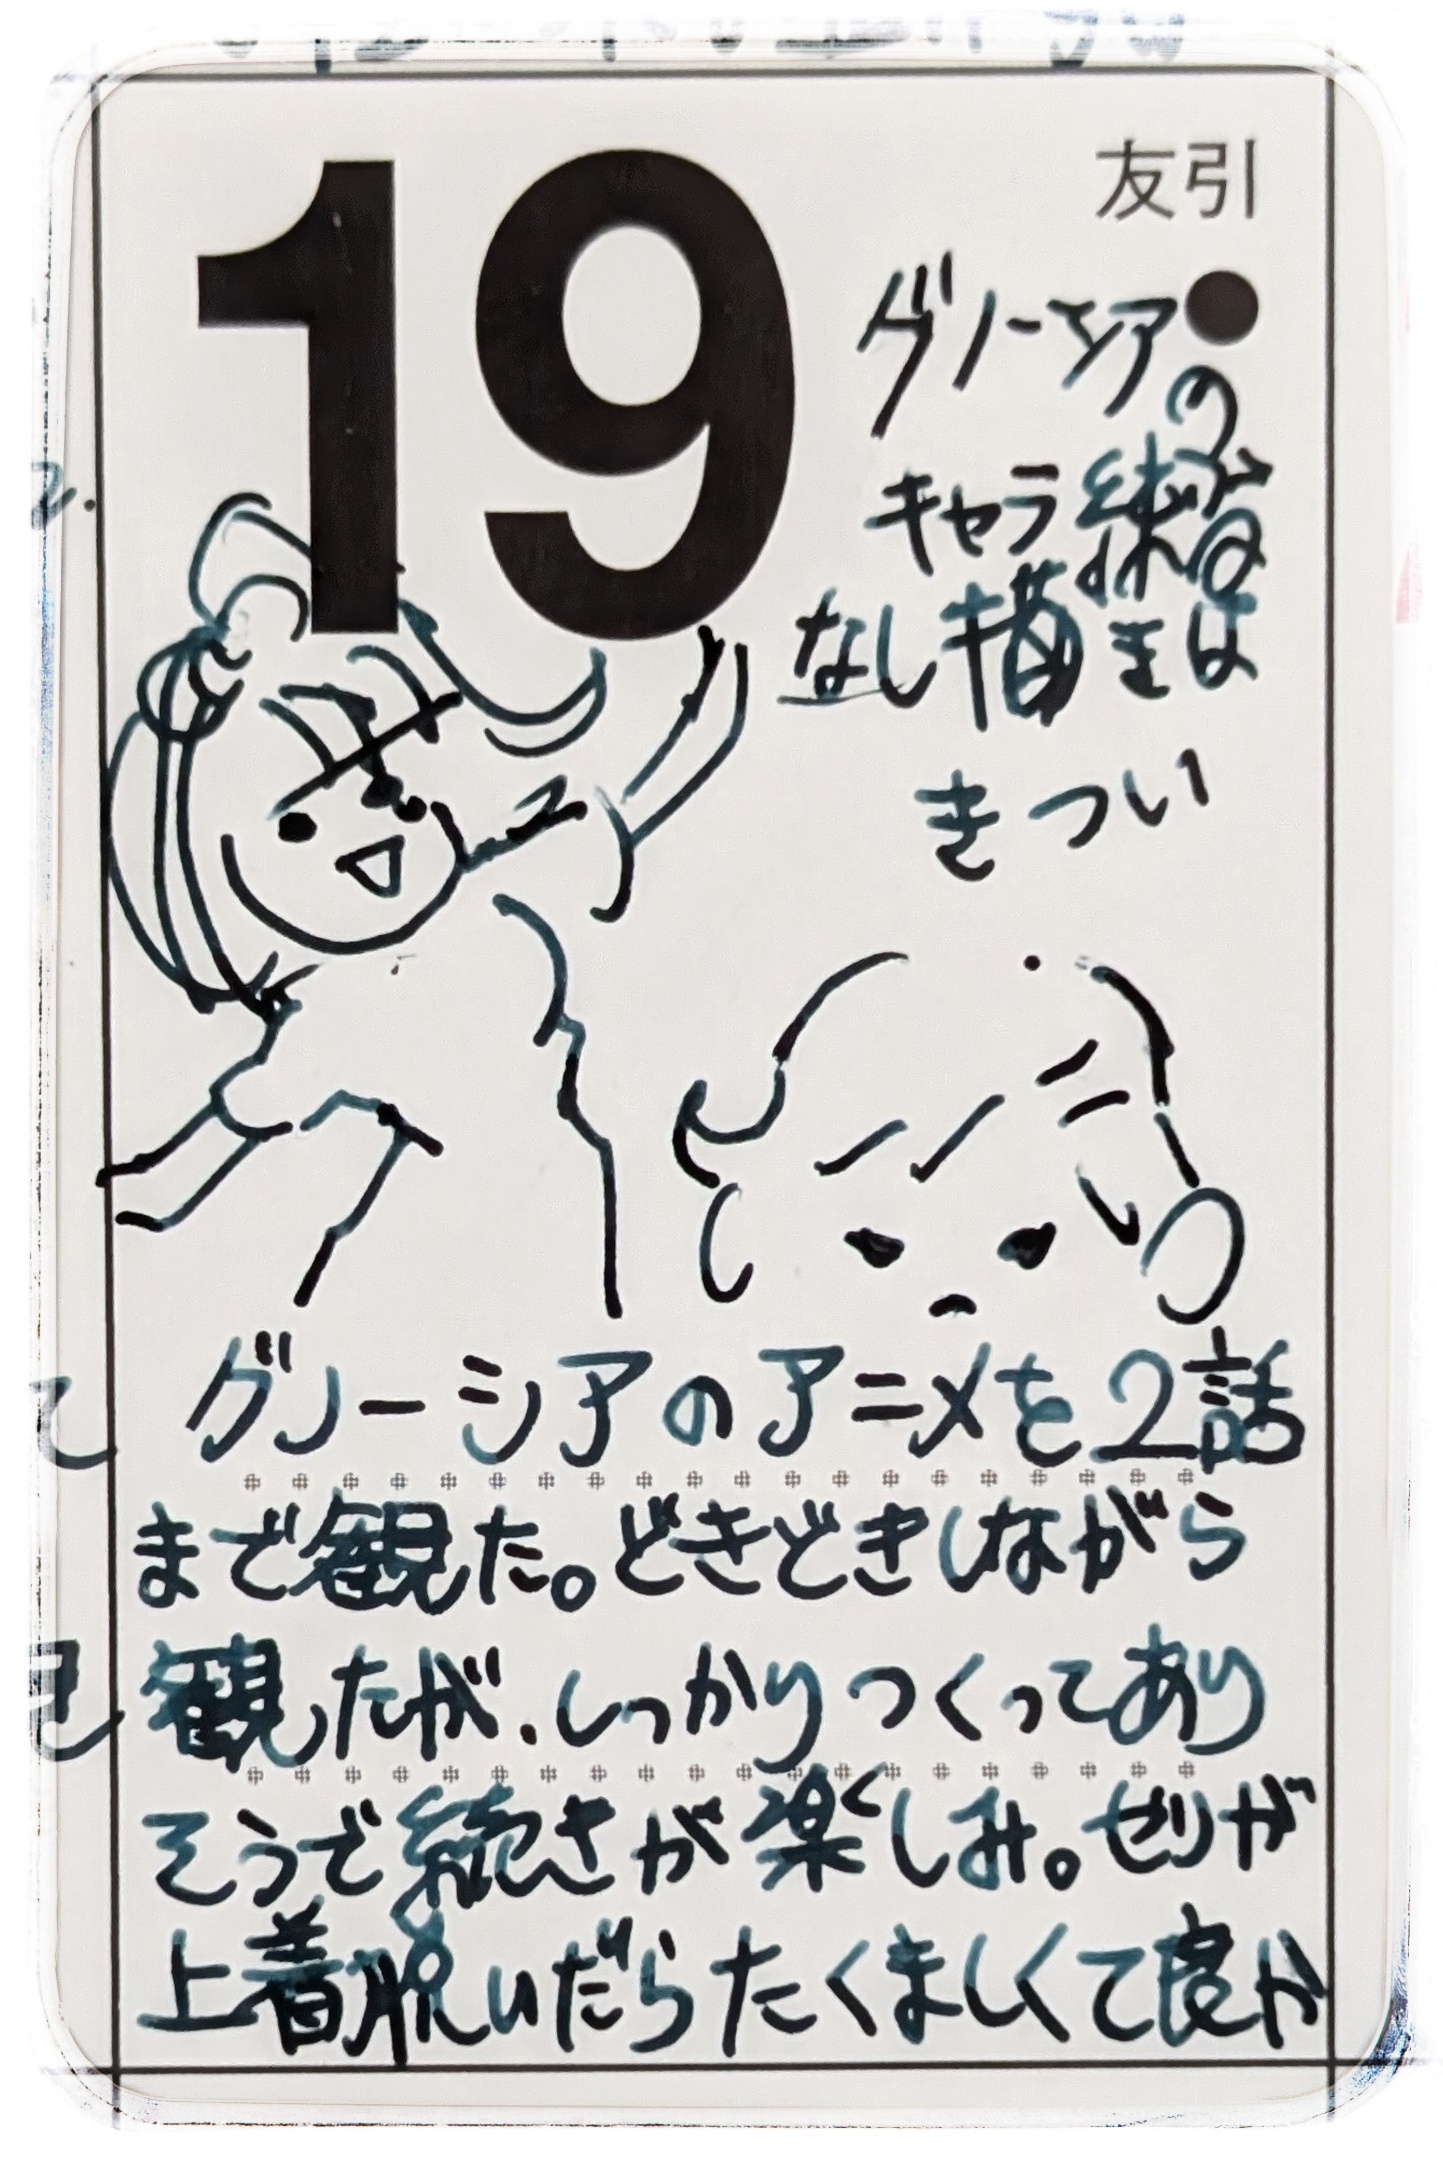 19
友引
グノーシアの
キャラ練習
なし描きは
きつい
グノーシアのアニメを2話
まで観た。どきどきしながら
観たが、しっかりつくってあり
そうで続きが楽しみ。セツが
上着脱いだらたくましくて良か